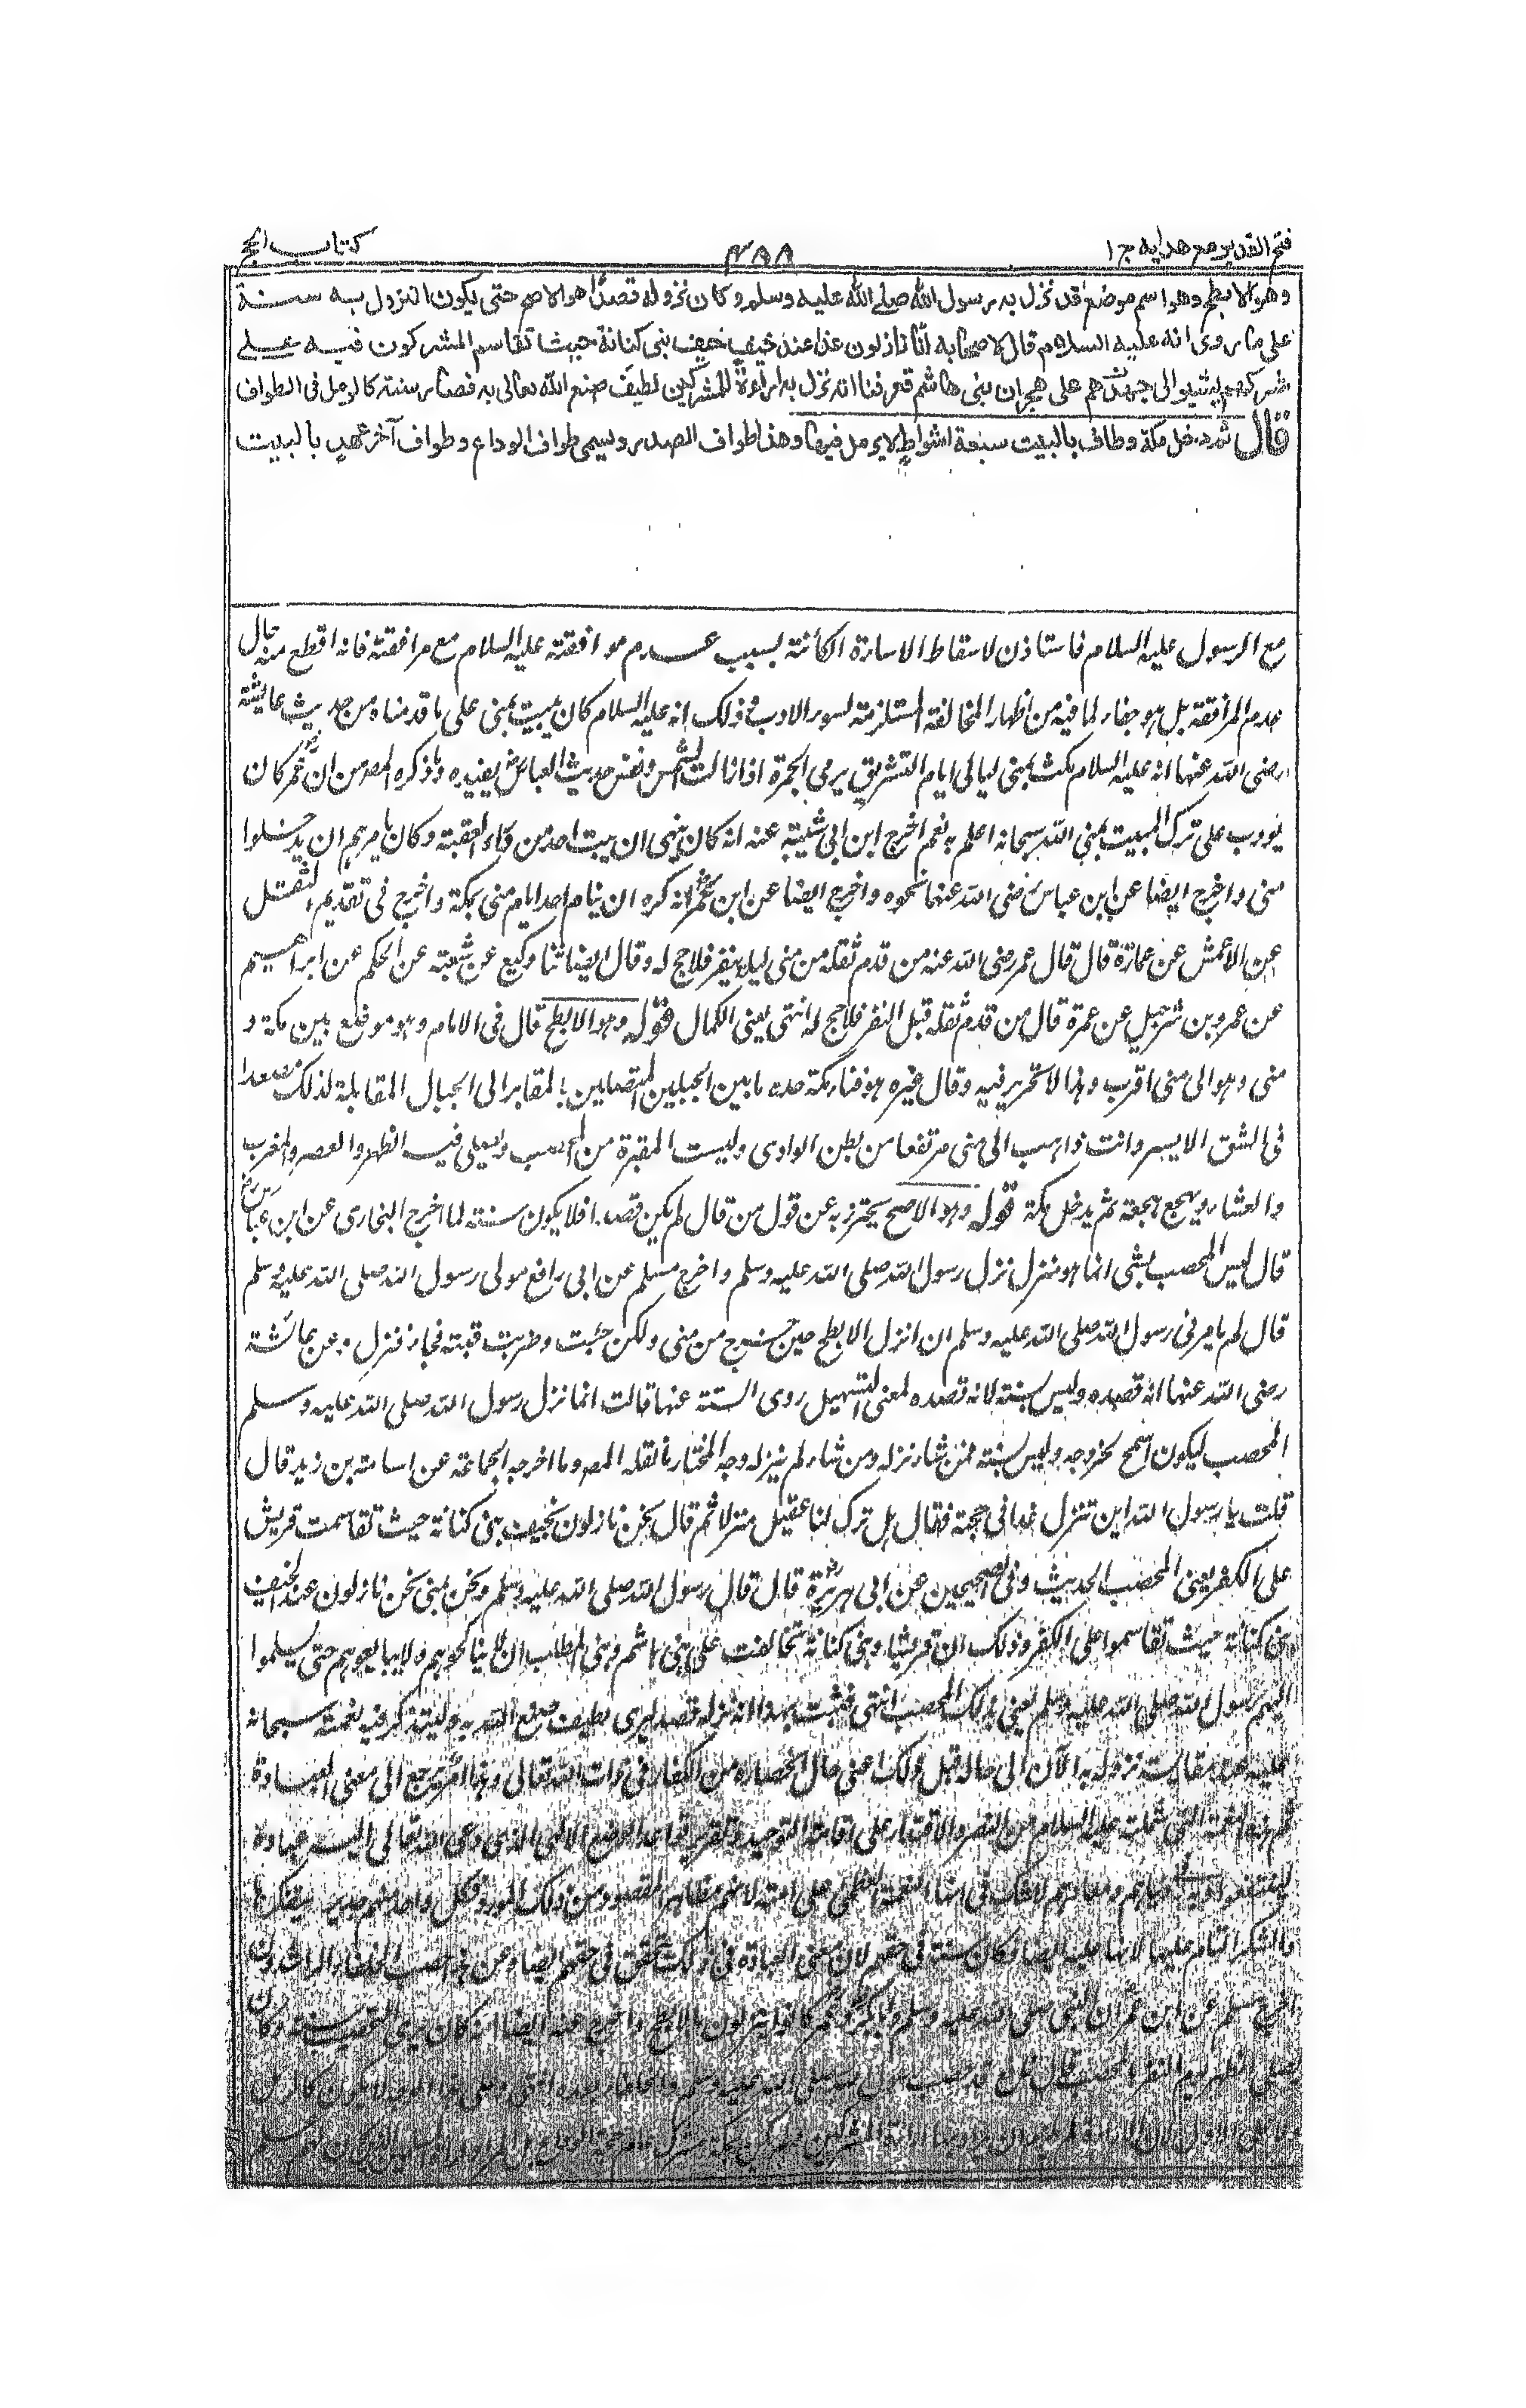 فتح القدير مع هدايه ج ١
٣٨٨
كتاب الحج
وهو الابطح وهو اسم موضع قد نزل به رسول الله صلى الله عليه وسلم وكان نزوله قصدا هو الاصح حتى يكون النزول به سنة
على ما روى انه عليه السلام قال لاصحابه انا نازلون غدا عند خيف خيف بنى كنانة حيث تقاسم المشركون فيه على
شركهم يشير الى جهدهم على هجران بنى هاشم فعرفنا انه نزل به اراءة للمشركين لطيف صنع الله تعالى به فصار سنة كالرمل فى الطواف
قال ثم دخل مكة وطاف بالبيت سبعة اشواط لا يرمل فيها وهذا طواف الصدر ويسمى طواف الوداع وطواف آخر عهد بالبيت
مع الرسول عليه السلام فاستاذن لاسقاط الاساءة الكائنة بسبب عدم موافقته عليه السلام مع مرافقته فانه اقطع منه حال
عدم المرافقة بل هو جفاء لما فيه من اظهار المخالفة المستلزمة لسوء الادب وذلك انه عليه السلام كان يبيت بمنى على ما قدمناه من حديث عايشة
رضى الله عنها انه عليه السلام مكث بمنى ليالى ايام التشريق يرمى الجمرة اذا زالت الشمس ونفس حديث العباس يفيده وما ذكره المص من ان عمر كان
يودب على ترك المبيت بمنى الله سبحانه اعلم به نعم اخرج ابن ابى شيبة عنه انه كان ينهى ان يبيت احد من وراء العقبة وكان يامرهم ان يدخلوا
منى واخرج ايضا عن ابن عباس رضى الله عنهما نحوه واخرج ايضا عن ابن عمر انه كره ان ينام احد ايام منى بمكة واخرج فى تقديم الثقل
عن الاعمش عن عمارة قال قال عمر رضى الله عنه من قدم ثقله من منى ليلة ينفر فلا حج له وقال ايضا ثنا وكيع عن شعبة عن الحكم عن ابراهيم
عن عمرو بن شرحبيل عن عمرة قال من قدم ثقله قبل النفر فلا حج له انتهى يعنى الكمال قوله وهو الابطح قال فى الامام وهو موضع بين مكة و
منى وهو الى منى اقرب وهذا لا تحرير فيه وقال غيره هو فناء مكة حده ما بين الجبلين المتصلين بالمقابر الى الجبال المقابلة لذلك مصعدا
فى الشق الايسر وانت ذاهب الى منى مرتفعا من بطن الوادى وليست المقبرة من المحصب ويصلى فيه الظهر والعصر والمغرب
والعشاء ويهجع هجعة ثم يدخل مكة قوله وهو الاصح يحترز به عن قول من قال لم يكن قصدا فلا يكون سنة لما اخرج البخارى عن ابن عباس رض
قال ليس المحصب بشئ انما هو منزل نزل رسول الله صلى الله عليه وسلم واخرج مسلم عن ابى رافع مولى رسول الله صلى الله عليه وسلم
قال لم يامرنى رسول الله صلى الله عليه وسلم ان انزل الابطح حين خرج من منى ولكن جئت وضربت قبته فجاء فنزل وعن عائشة
رضى الله عنها انه قصده وليس بسنة لانه قصده لمعنى التسهيل روى الستة عنها قالت انما نزل رسول الله صلى الله عليه وسلم
المحصب ليكون اسمح لخروجه وليس بسنة فمن شاء نزله ومن شاء لم ينزله وجه المختار ما نقله المص وما اخرجه الجماعة عن اسامة بن زيد قال
قلت يا رسول الله اين تنزل غدا فى حجة فقال هل ترك لنا عقيل منزلا ثم قال نحن نازلون بخيف بنى كنانة حيث تقاسمت قريش
على الكفر يعنى المحصب الحديث وفى الصحيحين عن ابى هريرة قال قال رسول الله صلى الله عليه وسلم ونحن بمنى نحن نازلون غدا بخيف
بنى كنانة حيث تقاسموا على الكفر وذلك ان قريشا وبنى كنانة تحالفت على بنى هاشم وبنى المطلب ان لا يناكحوهم ولا يبايعوهم حتى يسلموا
اليهم رسول الله صلى الله عليه وسلم يعنى بذلك المحصب انتهى فثبت بهذا انه نزله قصدا ليرى لطيف صنع الله به وليتذكر فيه نعمته سبحانه
عليه عند مقايسة نزوله به الآن الى حاله قبل ذلك اعنى حال انحصاره من الكفار فى ذات الله تعالى وهذا امر يرجع الى معنى العبادة
ثم هذه النعمة التى شملته عليه السلام من النصر والاقتدار على اقامة التوحيد وتقرير قواعد الوضع الالهى الذى دعى الله تعالى اليه عباده
لينتفعوا به فى دنياهم ومعادهم لا شك فى انها النعمة العظمى على امته لانهم مظاهر المقصود من ذلك المؤيد فكل واحد منهم جدير بتفكرها
والشكر التام عليها لانها عليه ايضا فكان سنة فى حقهم لان معنى العبادة فى ذلك يتحقق فى حقهم ايضا وعن هذا حصب الخلفاء الراشدون
اخرج مسلم عن ابن عمر ان النبى صلى الله عليه وسلم وابا بكر وعمر كانوا ينزلون بالابطح واخرج عنه ايضا انه كان يرى التحصيب سنة وكان
يصلى الظهر يوم النفر بالحصبة قال نافع قد حصب رسول الله صلى الله عليه وسلم والخلفاء بعده انتهى